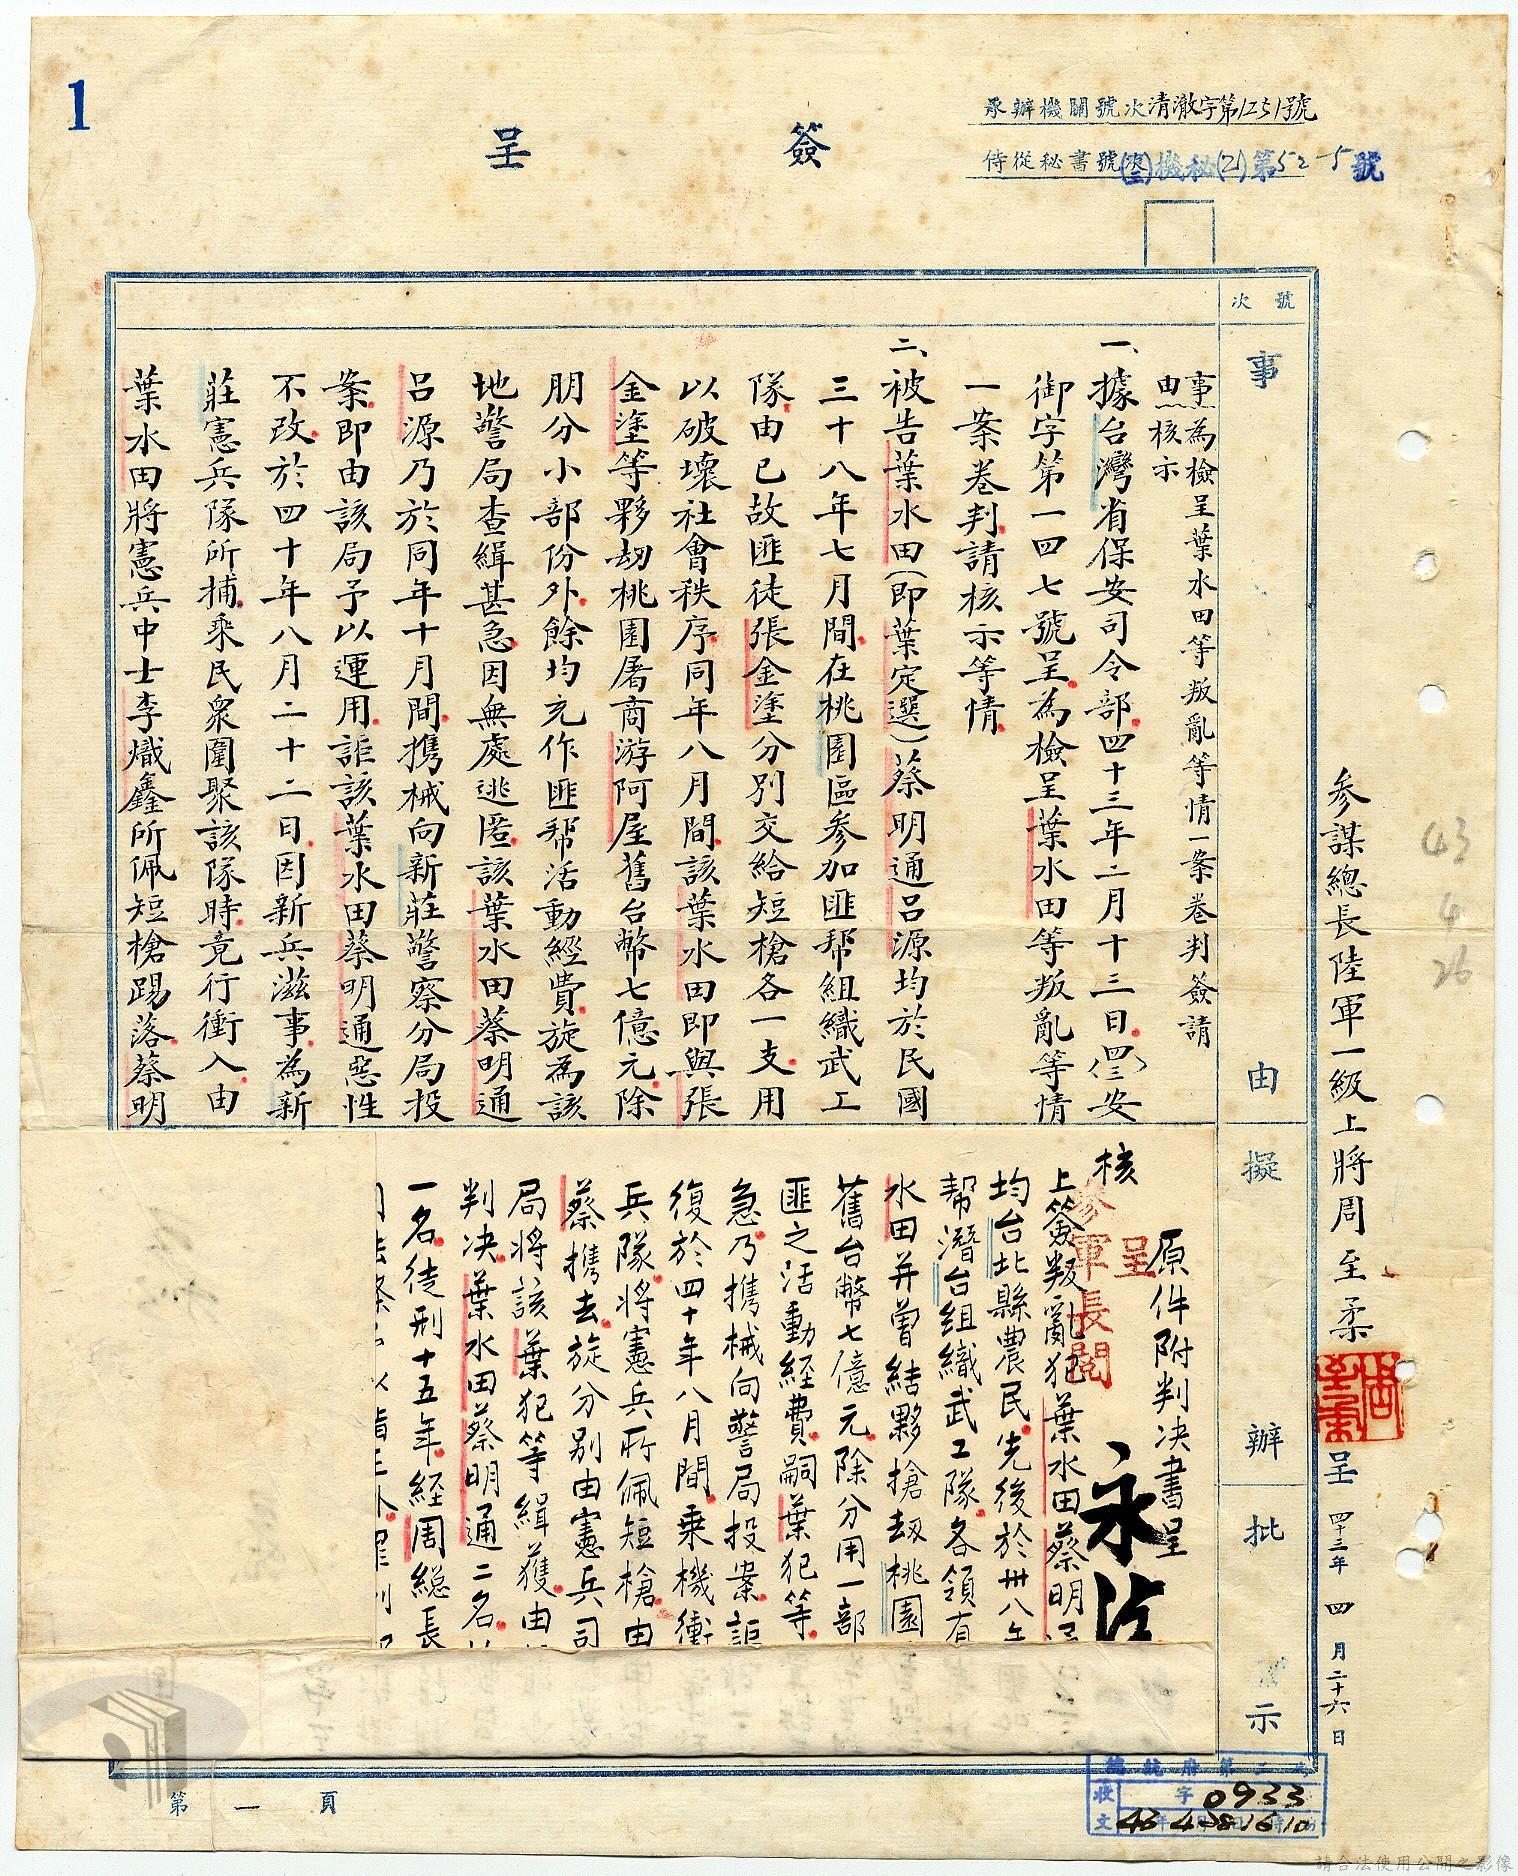 1
簽呈
承辦機關號次清澈字第1251號
侍從秘書號次(三)機秘(乙)第52-5號
號次
事由
擬辦
批示
事由 為檢呈葉水田等叛亂等情一案卷判簽請
核示
一、據台灣省保安司令部四十三年二月十三日(四三)安
御字第一四七號呈為檢呈葉水田等叛亂等情
一案卷判請核示等情
二、被告葉水田(即葉定選)蔡明通呂源均於民國
三十八年七月間在桃園區參加匪幫組織武工
隊由已故匪徒張金塗分別交給短槍各一支用
以破壞社會秩序同年八月間該葉水田即與張
金塗等夥劫桃園屠商游阿屋舊台幣七億元除
朋分小部份外餘均充作匪幫活動經費旋為該
地警局查緝甚急因無處逃匿該葉水田蔡明通
呂源乃於同年十月間攜械向新莊警察分局投
案即由該局予以運用詎該葉水田蔡明通惡性
不改於四十年八月二十二日因新兵滋事為新
莊憲兵隊所捕乘民衆圍聚該隊時竟行衝入由
葉水田將憲兵中士李熾鑫所佩短槍踢落蔡明
原件附判決書呈
核
呈
參軍長閱
上簽叛亂犯葉水田蔡明
均台北縣農民先後於卅八年
幫潛台組織武工隊各領有
水田并曾結夥搶劫桃園
舊台幣七億元除分用一部
匪之活動経費嗣葉犯等
急乃攜械向警局投案詎
復於四十年八月間乘機衝
兵隊將憲兵所佩短槍由
蔡攜去旋分別由憲兵司
局將該葉犯等緝獲由
判决葉水田蔡明通二名
一名徒刑十五年経周総長
參謀總長陸軍一級上將周至柔
周至柔
呈 四十三年四月二十六日
43
4
26
總統府第二局
收文 字 0933
43年4月28日16時10分
第一頁
請合法使用公開之影像